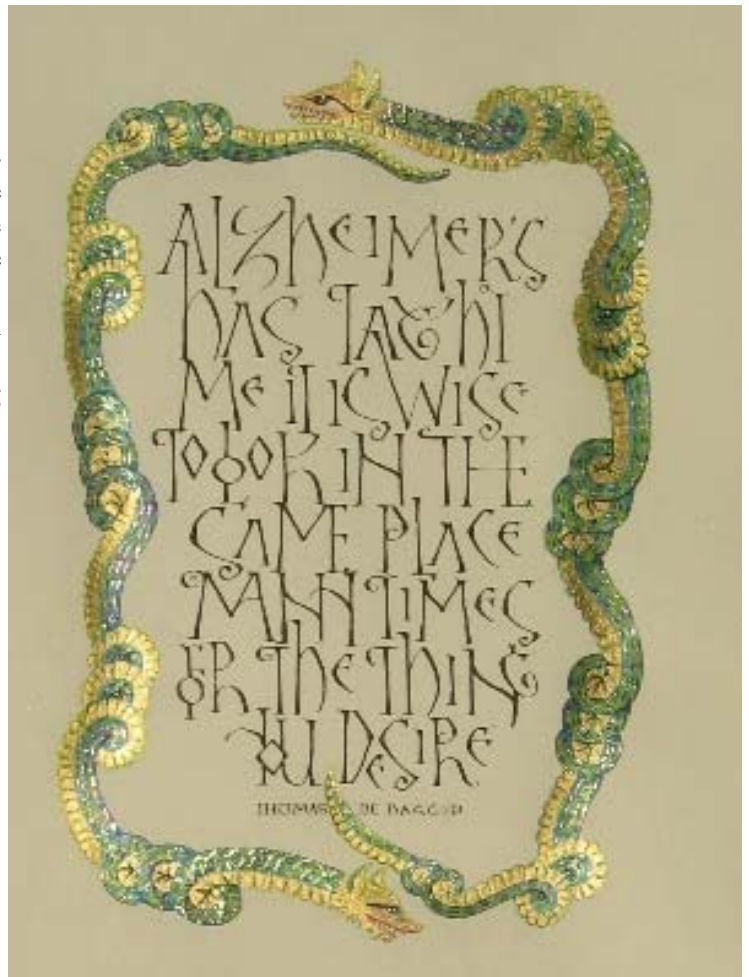 ALZHEIMER'S
HAS TAUGHT
ME IT IS WISE
TO LOOK IN THE
SAME PLACE
MANY TIMES
FOR THE THING
YOU DESIRE
THOMAS DE BAGGIO